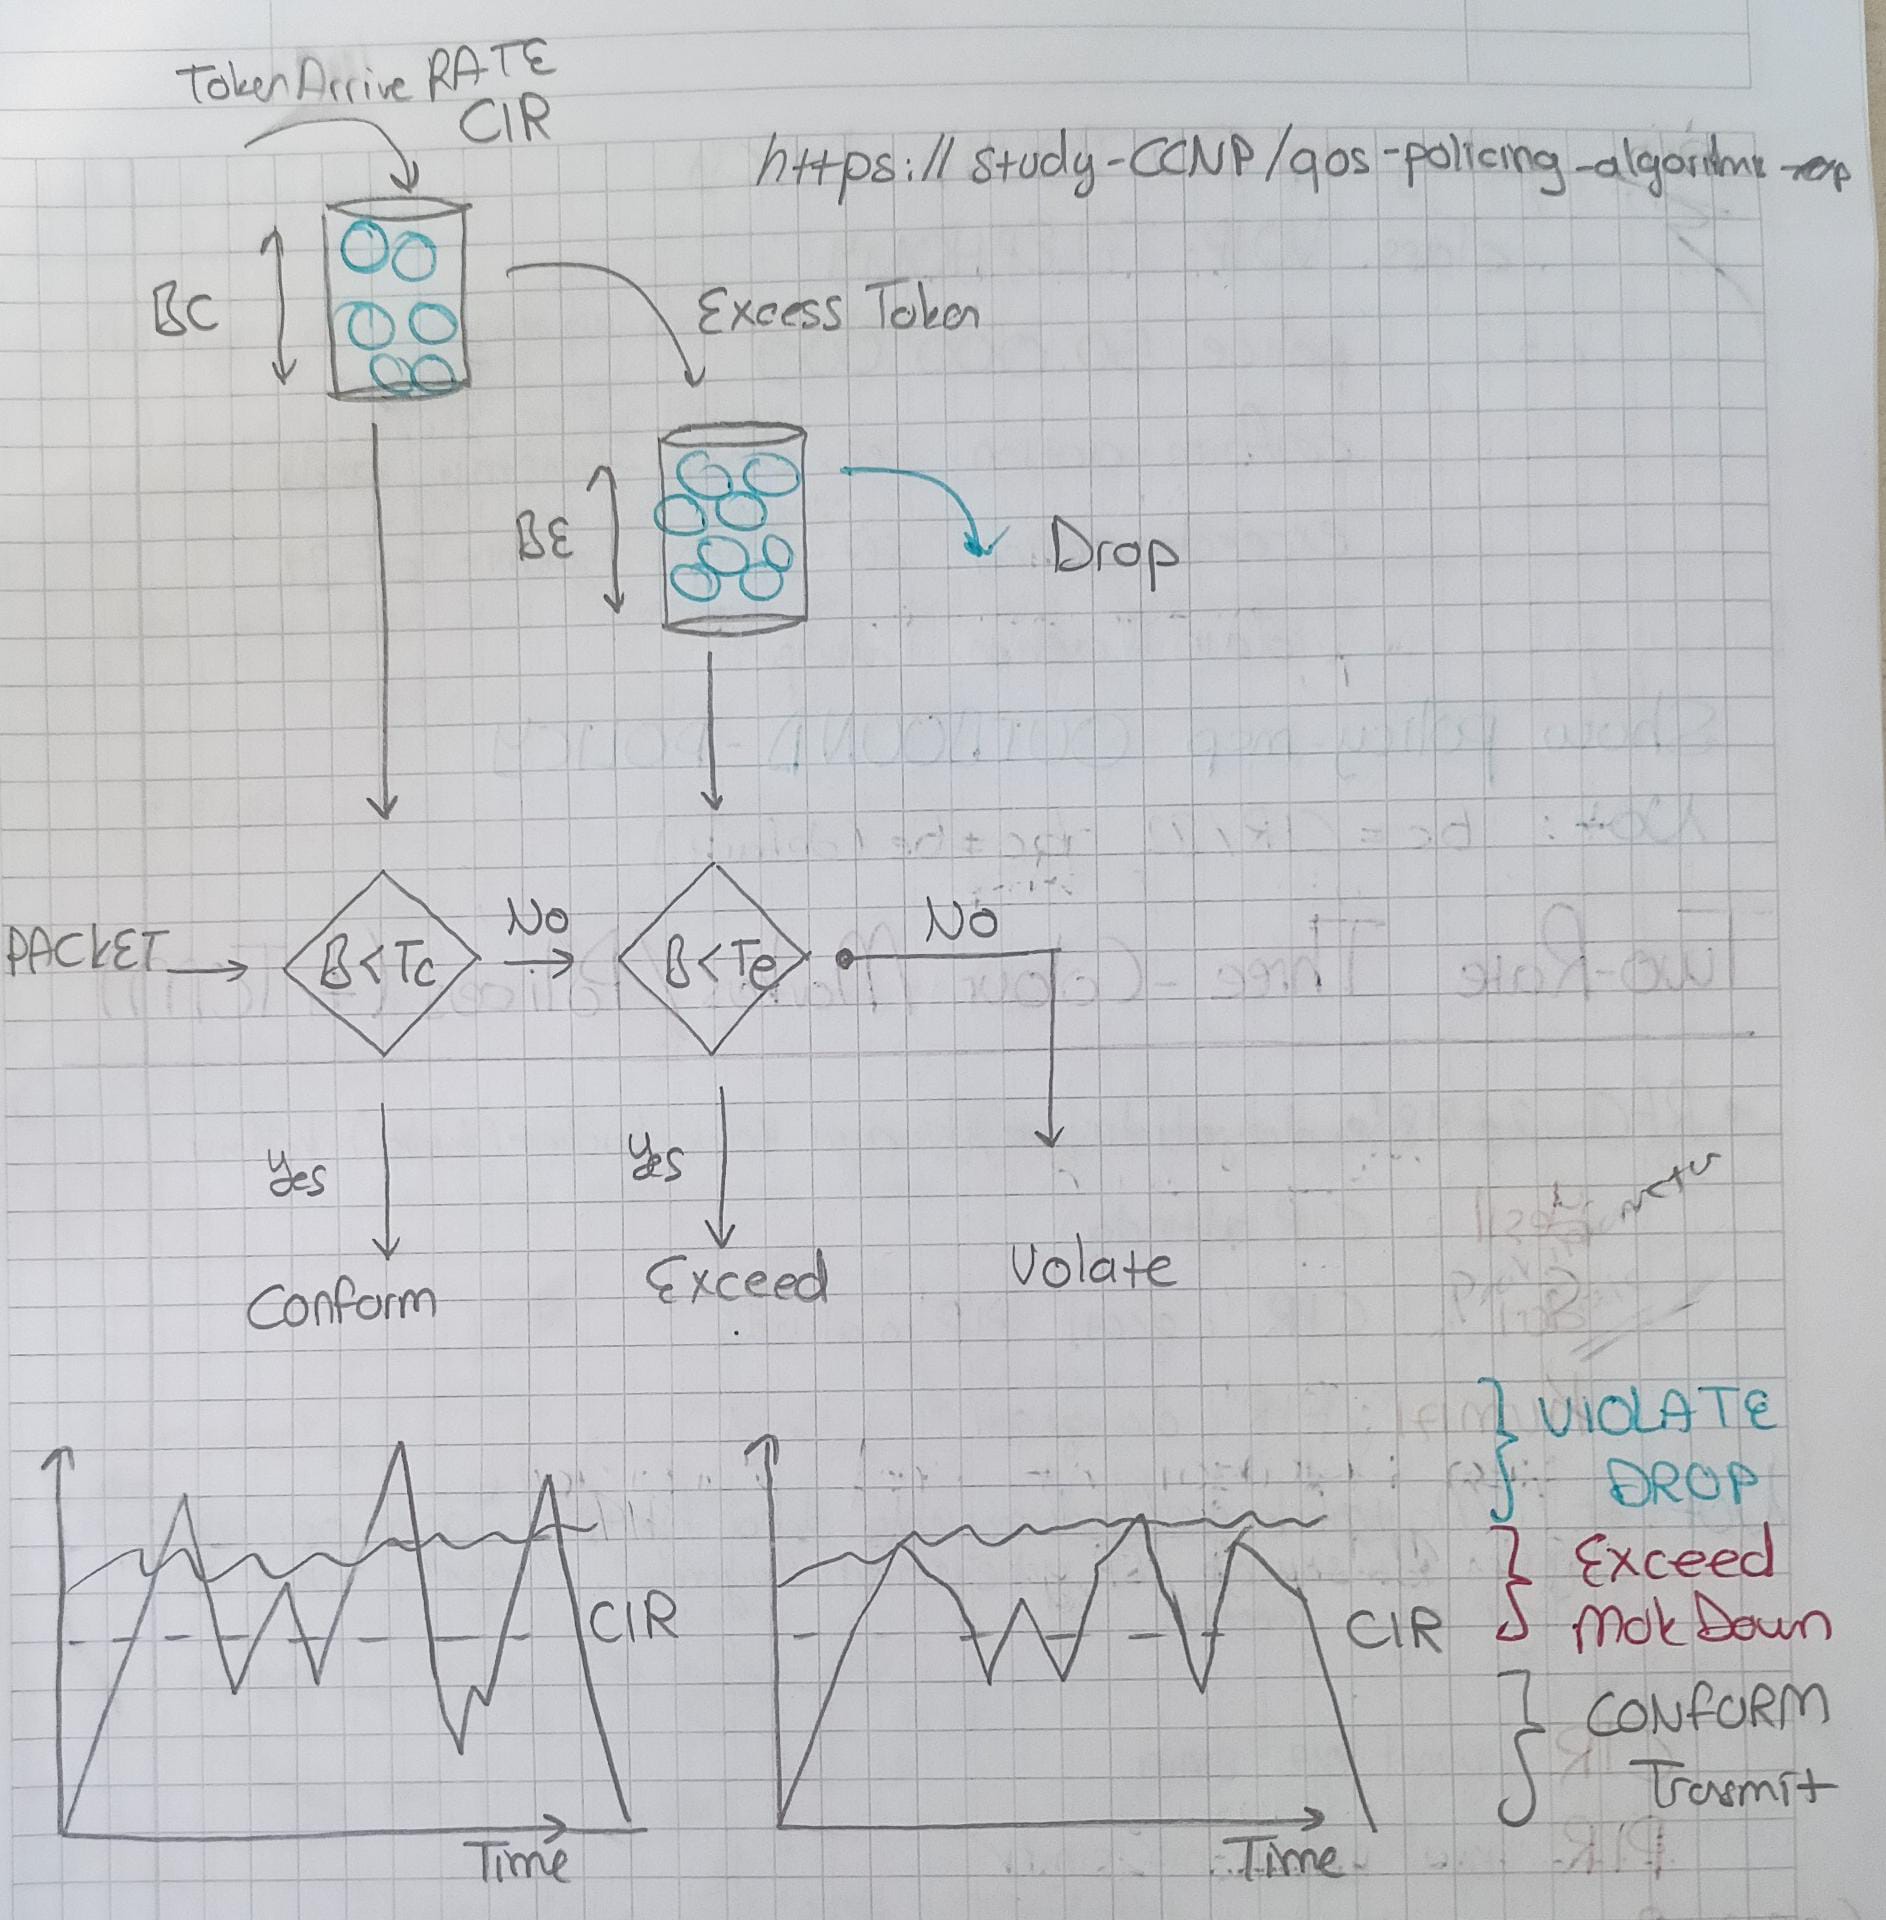 Token Arrive RATE
CIR
https://study-CCNP/qos-policing-algoritme-
BC
Excess Token
BE
Drop
PACKET
B<Tc
No
B<Te
No
Yes
Yes
Conform
Exceed
Volate
CIR
Time
CIR
Time
VIOLATE
DROP
Exceed
Mak Down
CONFORM
Trasmit